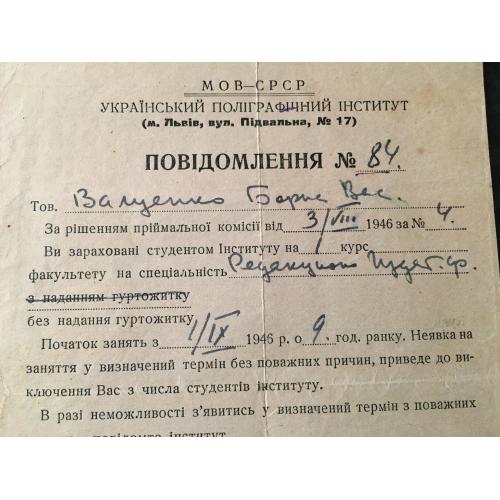 МОВ—СРСР
УКРАЇНСЬКИЙ ПОЛІГРАФІЧНИЙ ІНСТИТУТ
(м. Львів, вул. Підвальна, № 17)
ПОВІДОМЛЕННЯ № 84.
Тов. Валуенко Борис Вас.
За рішенням приймальної комісії від 3/VIII 1946 за № 4.
Ви зараховані студентом Інституту на 1 курс
факультету на спеціальність Редакционно Издат. ф.
з наданням гуртожитку
без надання гуртожитку
Початок занять з 1/IX 1946 р. о 9. год. ранку. Неявка на
заняття у визначений термін без поважних причин, приведе до ви-
ключення Вас з числа студентів інституту.
В разі неможливості з'явитись у визначений термін з поважних
повідомте інститут